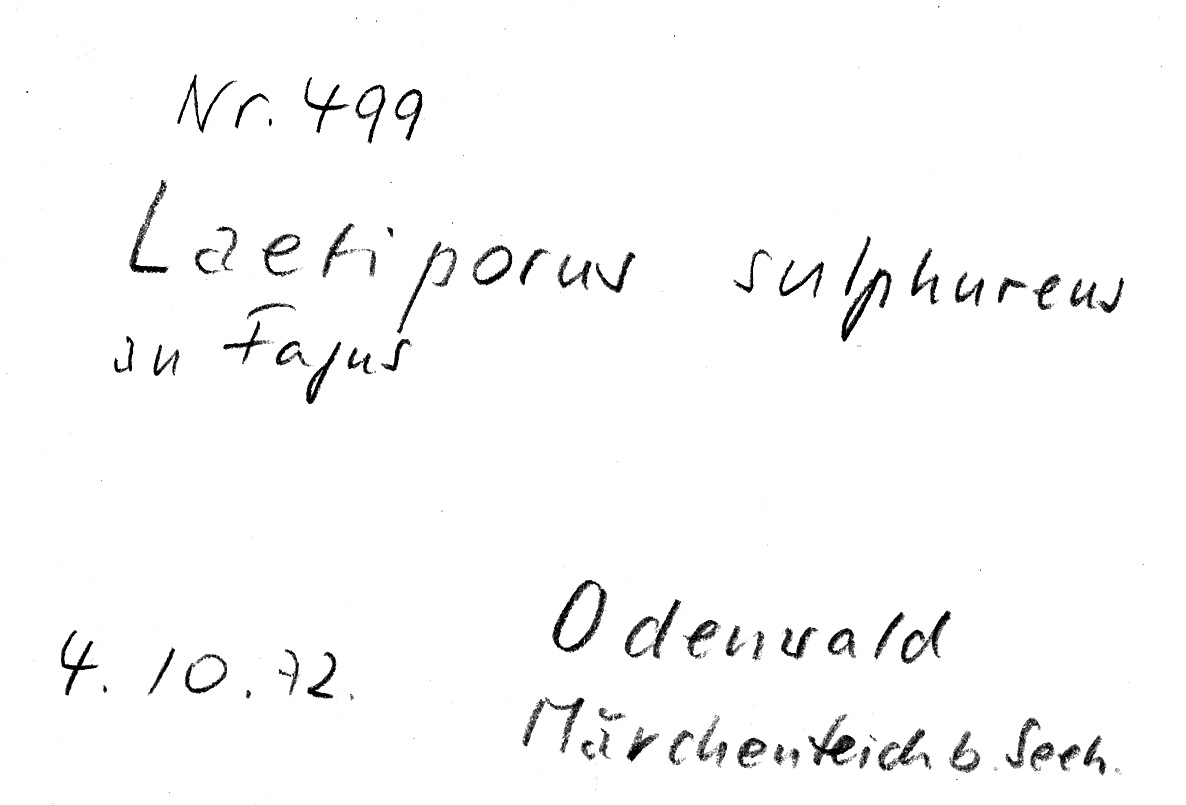 Nr. 499
Laetiporus sulphureus
an Fagus
4.10.72.
Odenwald
Märchenteich b. Seeh.